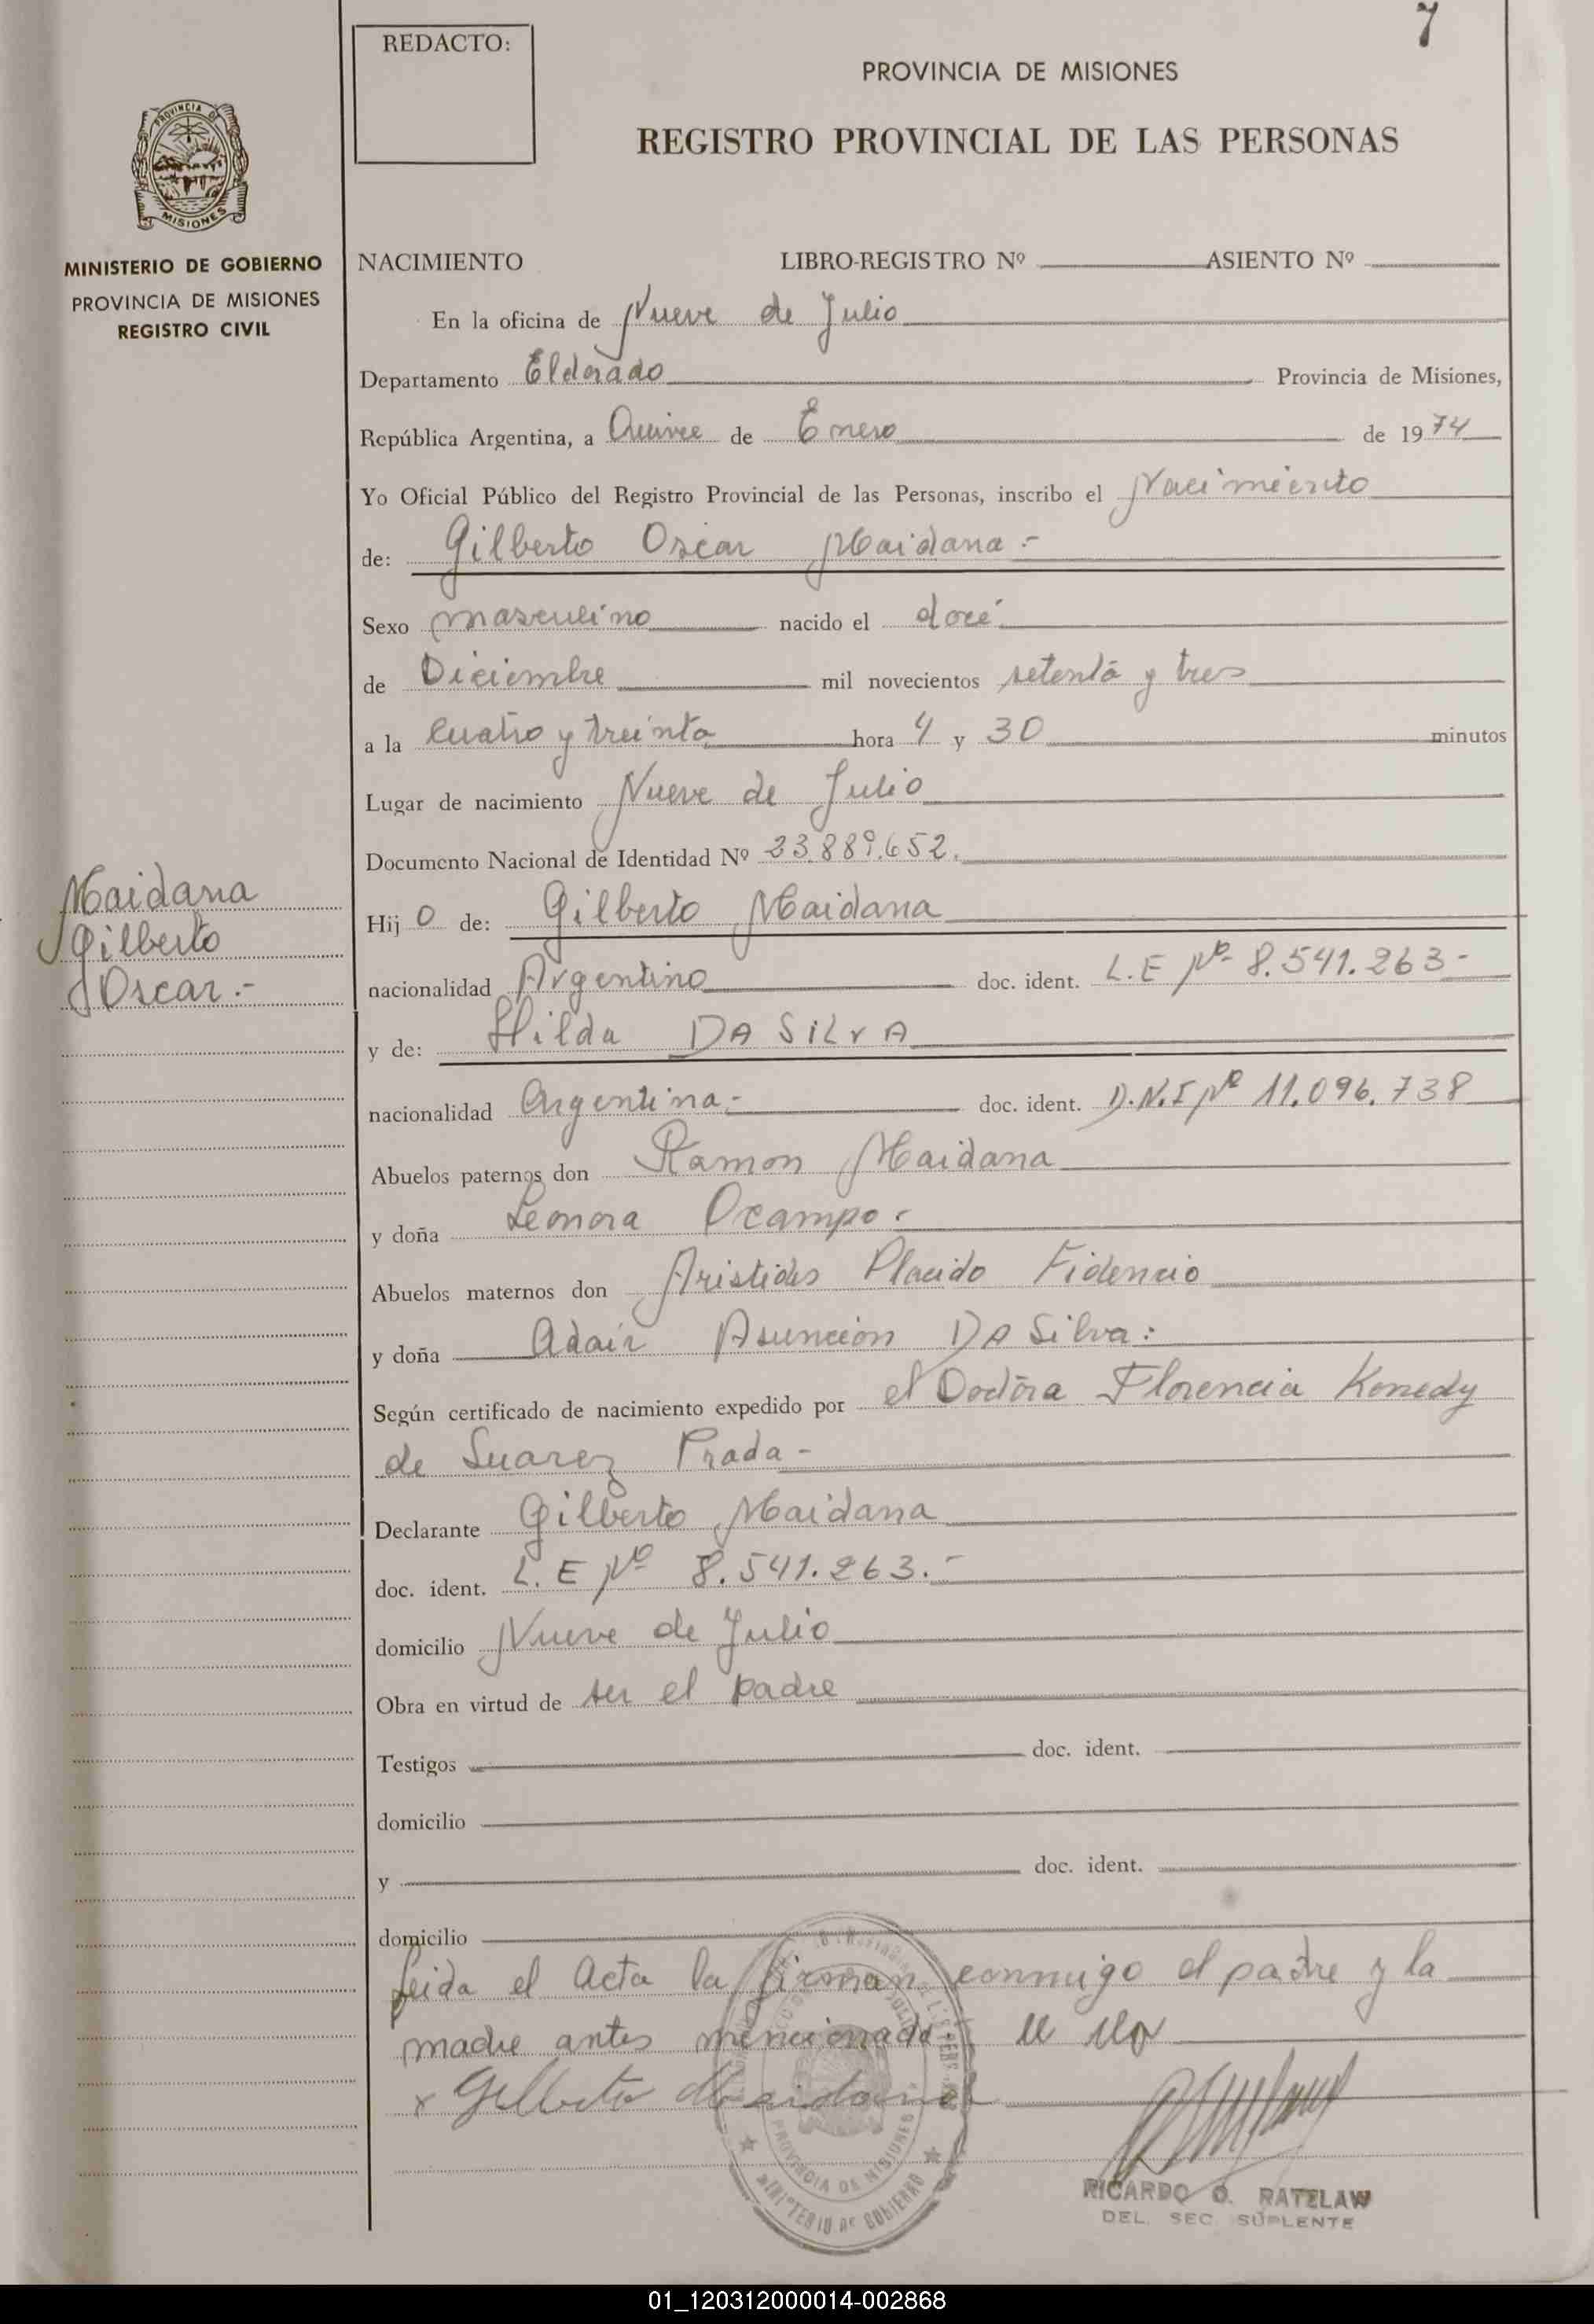 7
REDACTO:
PROVINCIA DE MISIONES
REGISTRO PROVINCIAL DE LAS PERSONAS
PROVINCIA DE
MISIONES
MINISTERIO DE GOBIERNO
PROVINCIA DE MISIONES
REGISTRO CIVIL
NACIMIENTO LIBRO-REGISTRO Nº ASIENTO Nº
En la oficina de Nueve de Julio
Departamento Eldorado Provincia de Misiones,
República Argentina, a Quince de Enero de 1974
Yo Oficial Público del Registro Provincial de las Personas, inscribo el Nacimiento
de: Gilberto Oscar Maidana.-
Sexo masculino nacido el doce
de Diciembre mil novecientos setenta y tres
a la cuatro y treinta hora 4 y 30 minutos
Lugar de nacimiento Nueve de Julio
Documento Nacional de Identidad Nº 23.889.652.
Maidana
Gilberto
Oscar.-
Hijo de: Gilberto Maidana
nacionalidad Argentino doc. ident. L.E Nº 8.541.263-
y de: Hilda DA SILVA
nacionalidad Argentina.- doc. ident. D.N.I Nº 11.096.738
Abuelos paternos don Ramon Maidana
y doña Leonora Ocampo.
Abuelos maternos don Aristides Placido Fidencio
y doña Adair Asuncion DA Silva:
Según certificado de nacimiento expedido por el Doctora Florencia Kenedy
de Suarez Prada-
Declarante Gilberto Maidana
doc. ident. L.E Nº 8.541.263.-
domicilio Nueve de Julio
Obra en virtud de ser el padre
Testigos doc. ident.
domicilio
y doc. ident.
domicilio
Leida el Acta la firman conmigo el padre y la
madre antes mencionada
x Gilberto Maidana
PROVINCIA DE MISIONES
MINISTERIO DE GOBIERNO
RICARDO O. RATZLAW
DEL. SEC. SUPLENTE
01_120312000014-002868